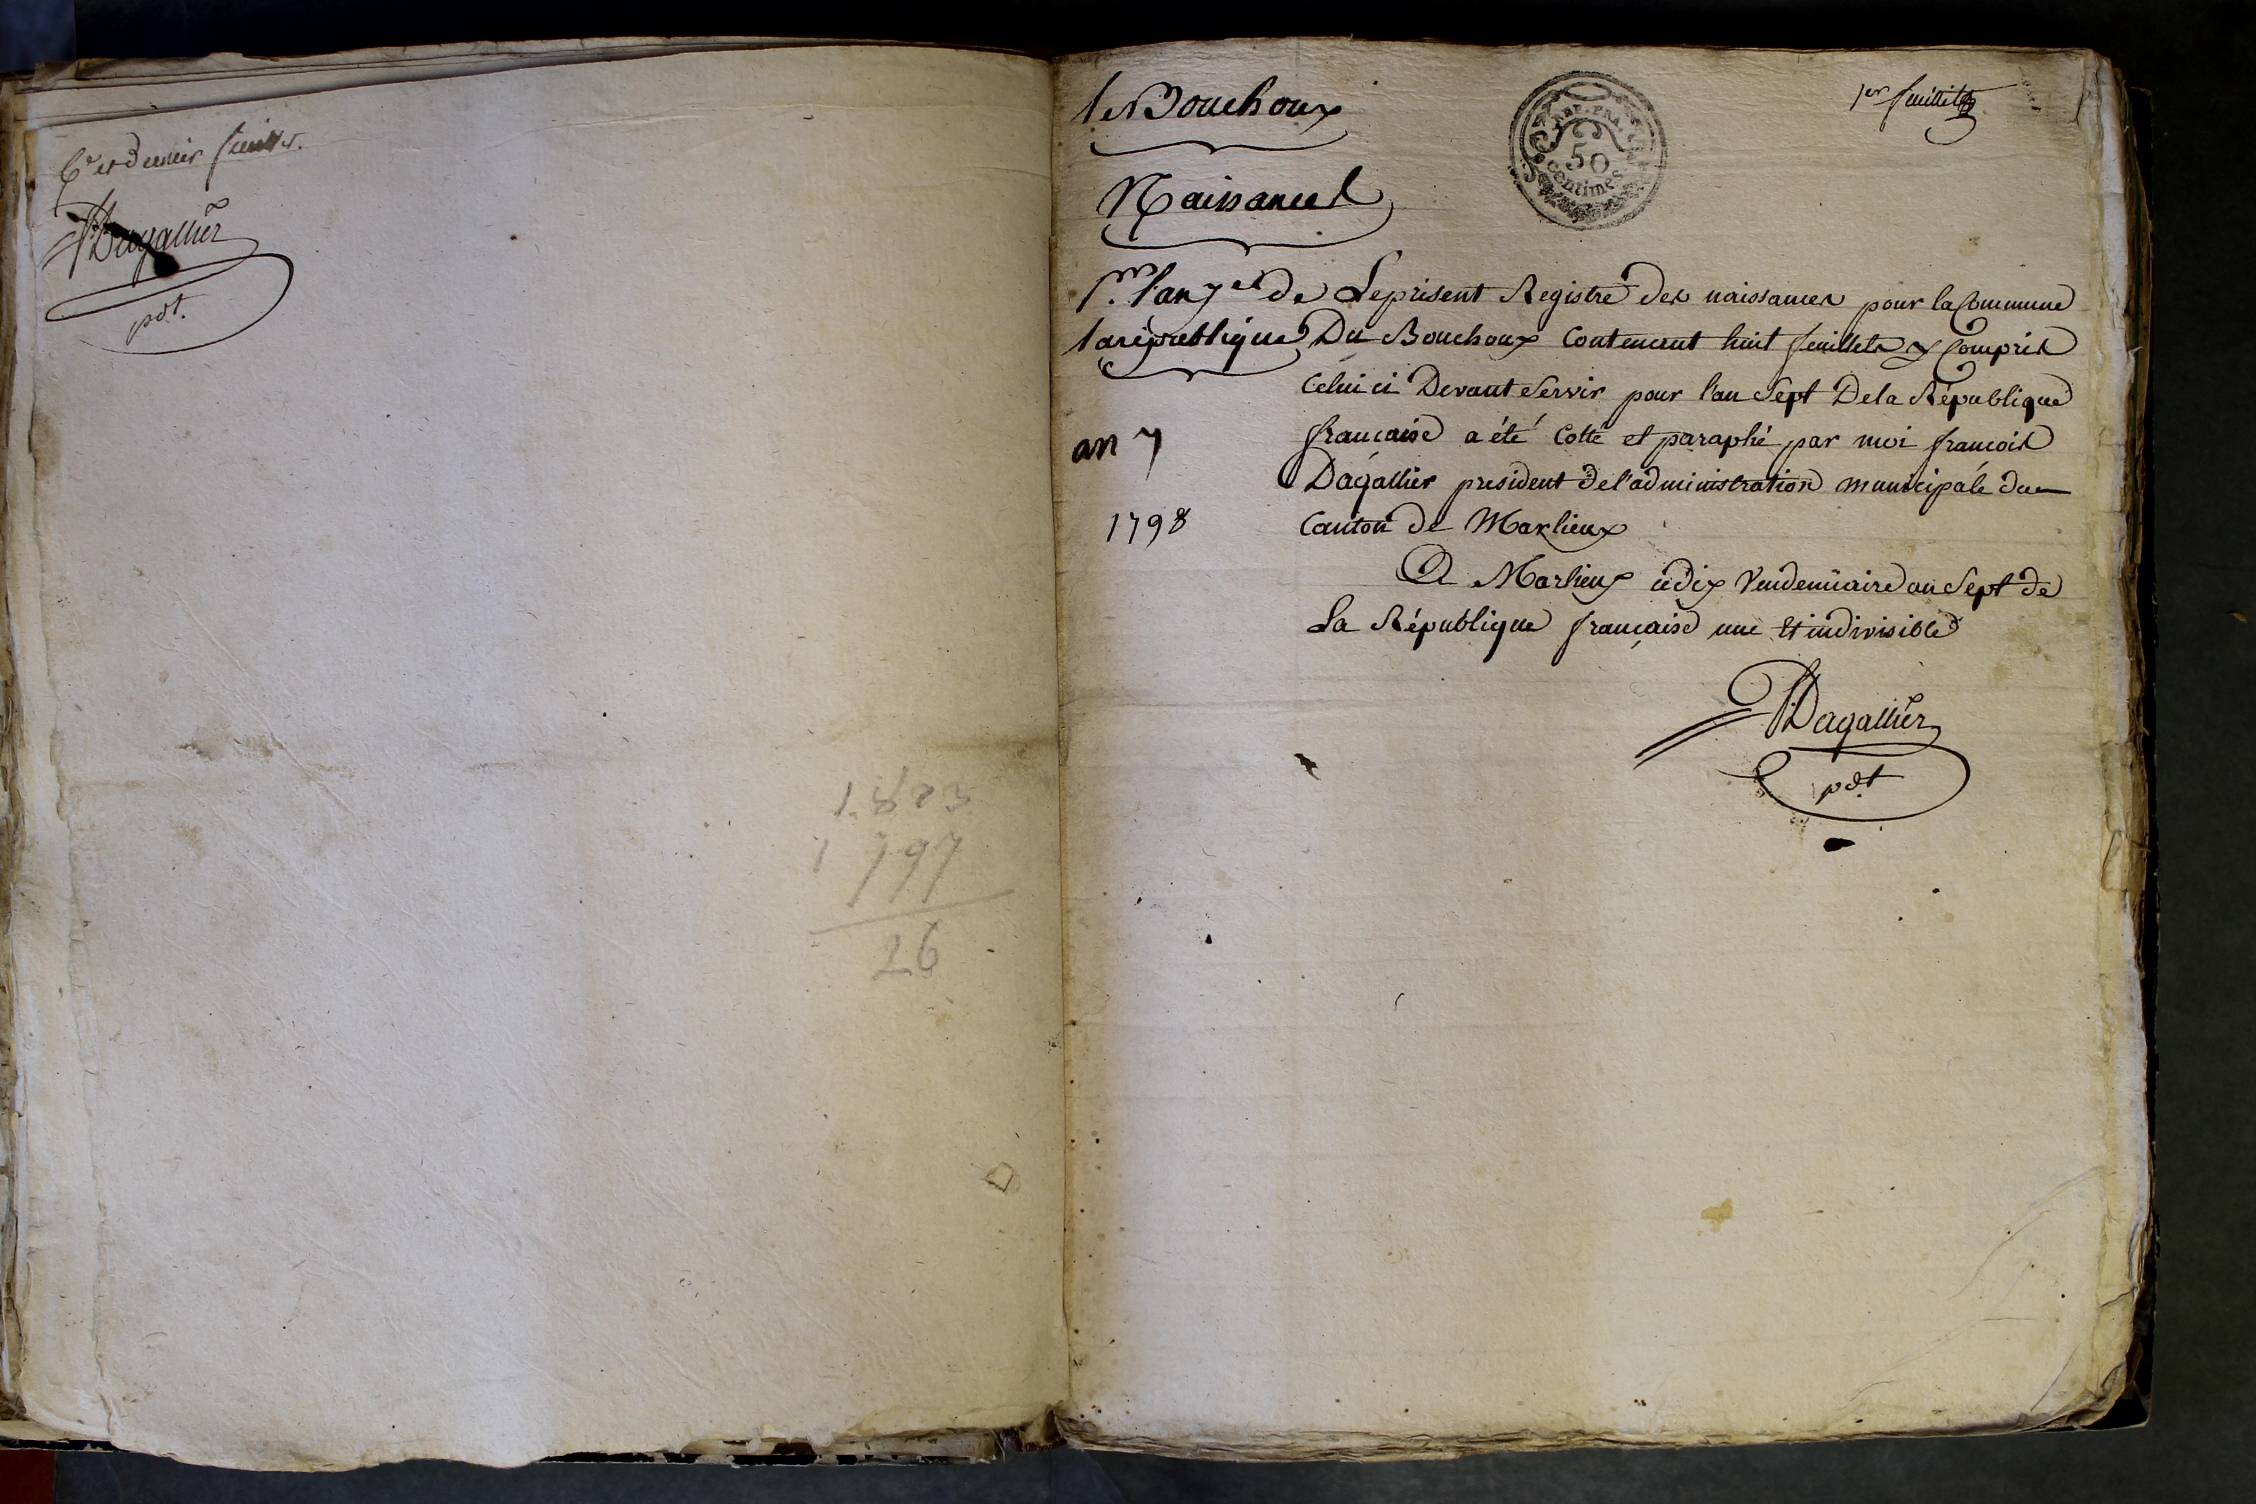 6e et dernier feuillet.
Dagallier
pdt.
1.823
1797
26
le Bouchoux
REP. FRA.
50
centimes.
1er feuillet
Naissances
pr. l'an 7e de
la république
an 7
1798
Le présent Registre des naissances pour la Commune
Du Bouchoux Contenant huit feuillets y Compris
Celui ci Devant Servir pour l'an Sept De la République
française a été Cotté et paraphé par moi françois
Dagallier president de l'administration municipale du
Canton de Marlieux
A Marlieux ce dix Vendemiaire an Sept de
La République française une et indivisible
Dagallier
pdt